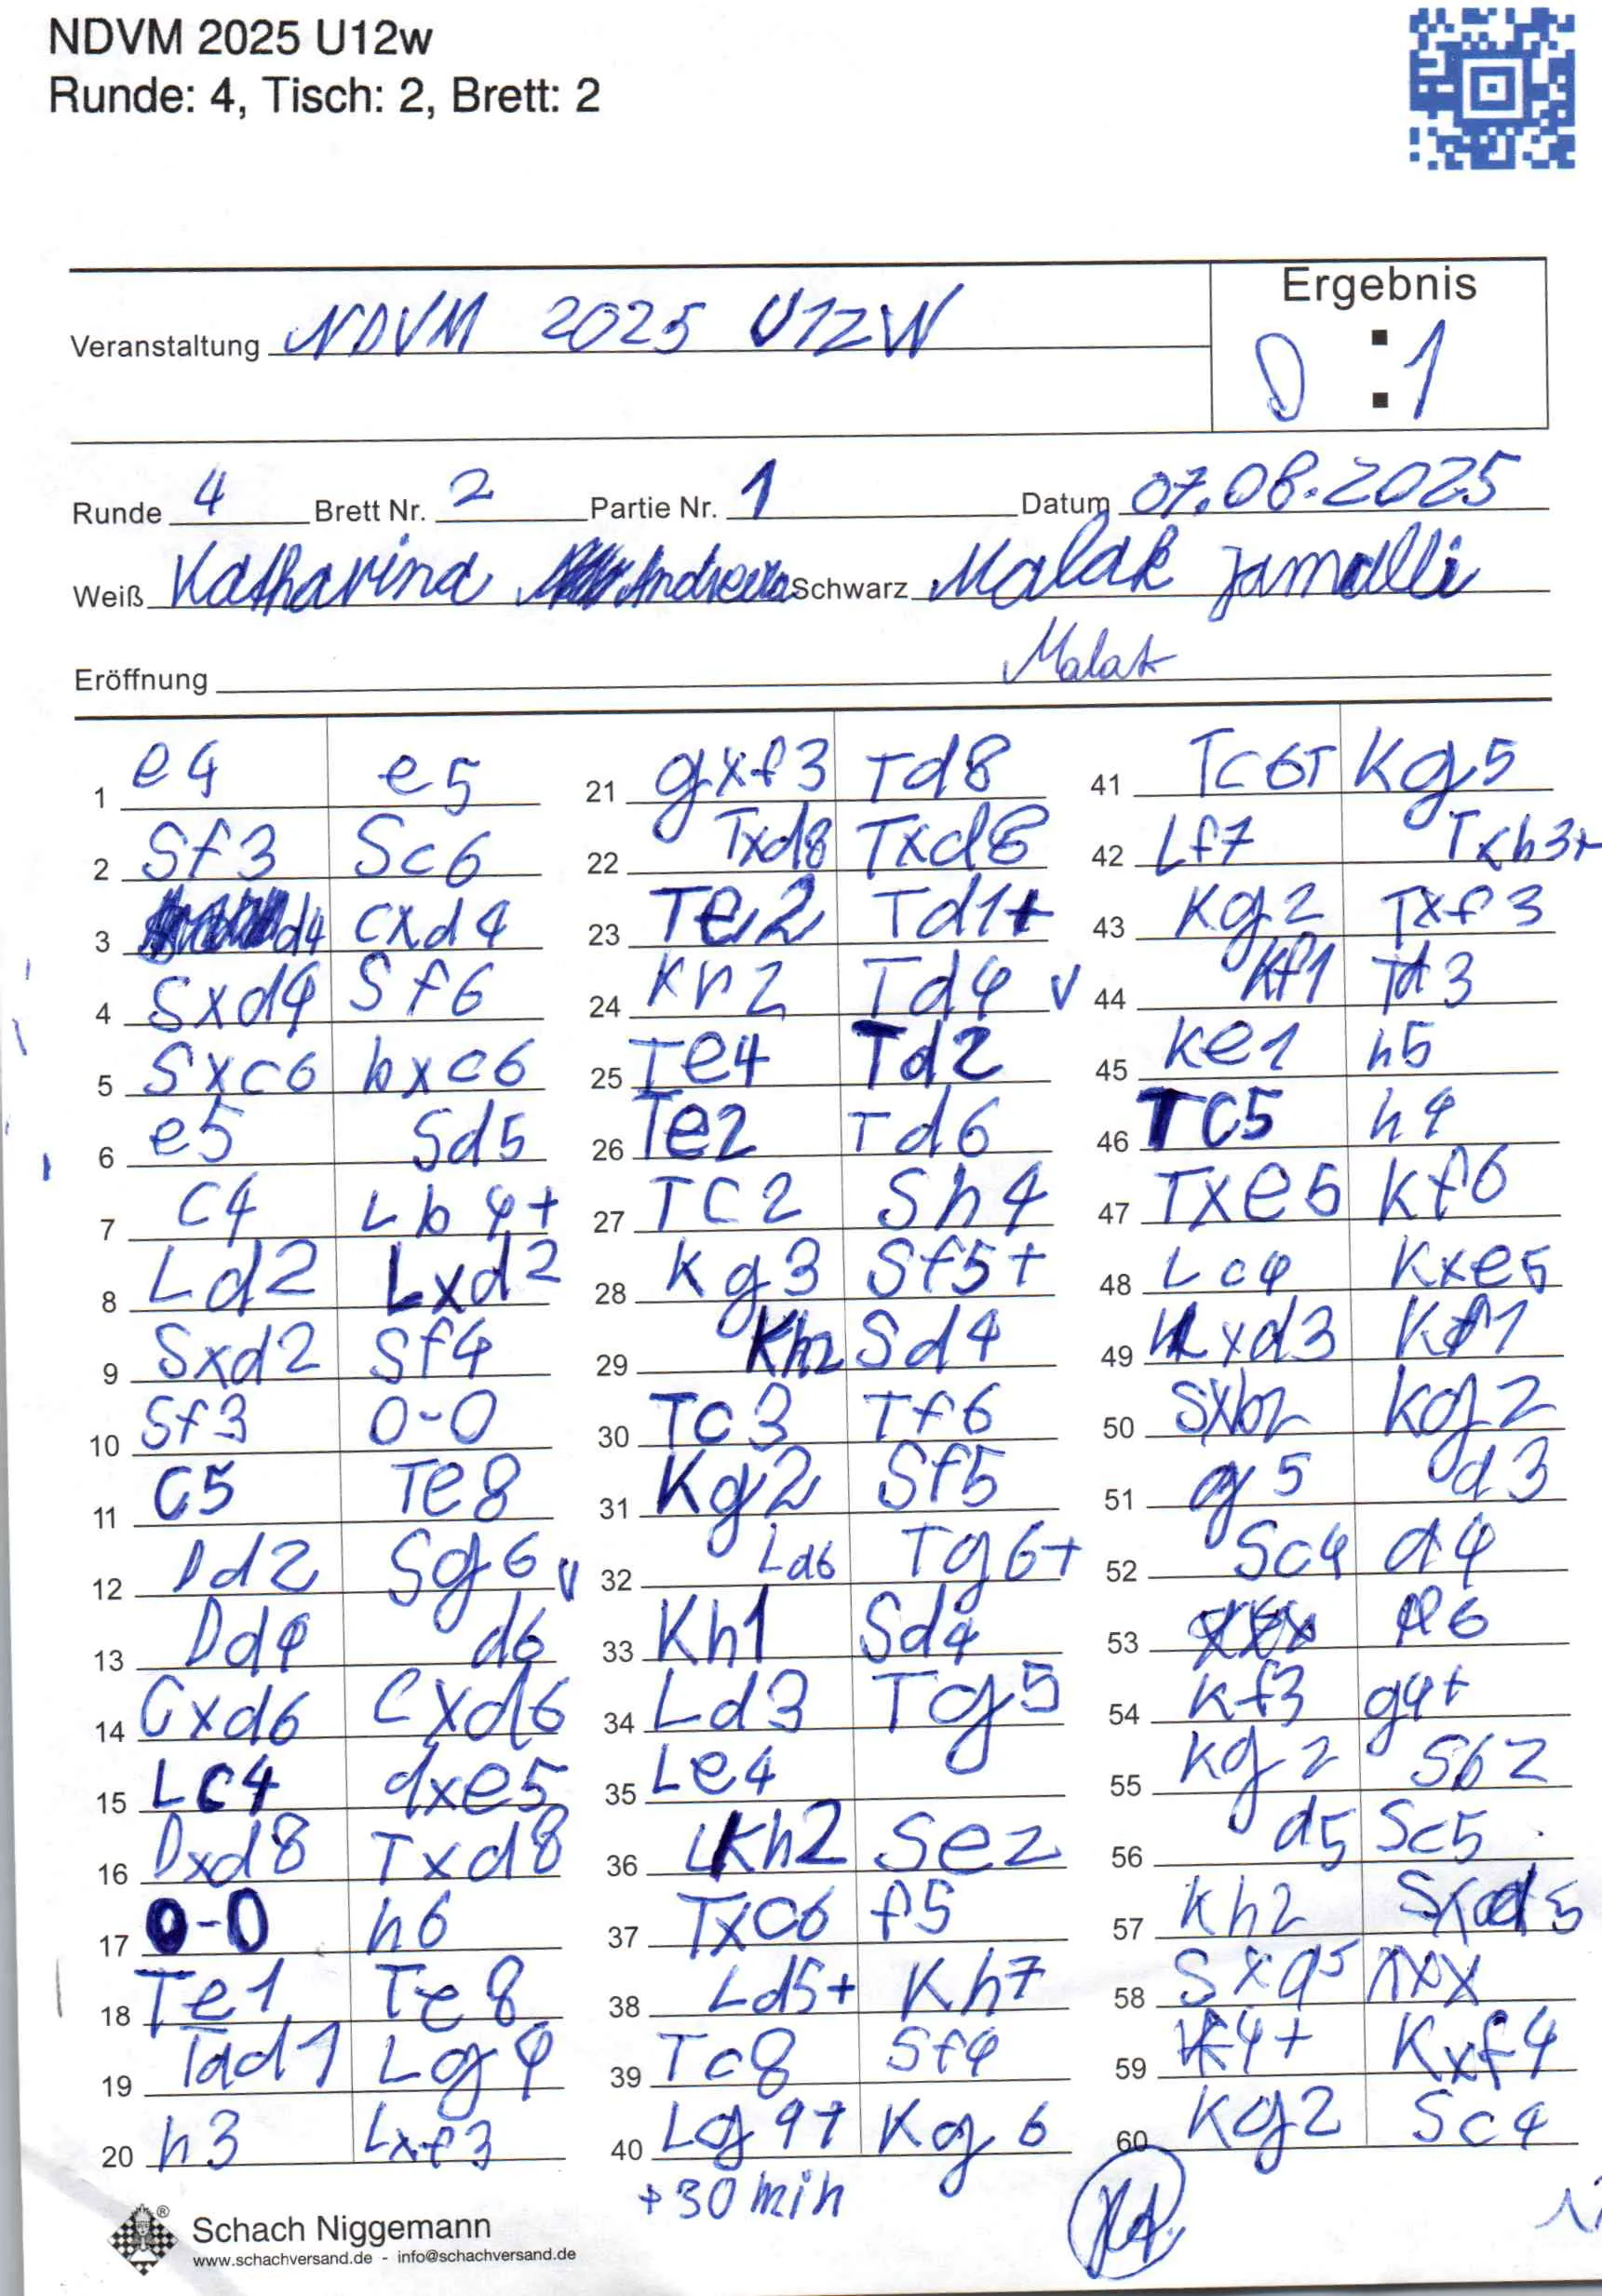 NDVM 2025 U12w
Runde: 4, Tisch: 2, Brett: 2
Ergebnis
Veranstaltung NDVM 2025 U12W
0 : 1
Runde 4 Brett Nr. 2 Partie Nr. 1 Datum 07.08.2025
Weiß Katharina Schwarz Malak Jamalli
Malak
Eröffnung
1 e4 e5
2 Sf3 Sc6
3 d4 cxd4
4 Sxd4 Sf6
5 Sxc6 bxc6
6 e5 Sd5
7 c4 Lb4+
8 Ld2 Lxd2
9 Sxd2 Sf4
10 Sf3 0-0
11 c5 Te8
12 Dd2 Sg6 v
13 Dd4 d6
14 Cxd6 Cxd6
15 Lc4 dxe5
16 Dxd8 Txd8
17 0-0 h6
18 Te1 Te8
19 Tad1 Lg4
20 h3 Lxf3
21 gxf3 Td8
22 Txd8 Txd8
23 Te2 Td1+
24 Kh2 Td4 v
25 Te4 Td2
26 Te2 Td6
27 TC2 Sh4
28 Kg3 Sf5+
29 Kh2 Sd4
30 Tc3 Tf6
31 Kg2 Sf5
32 Ld6 Tg6+
33 Kh1 Sd4
34 Ld3 Tg5
35 Le4
36 Kh2 Se2
37 Txc6 f5
38 Ld5+ Kh7
39 Tc8 Sf4
40 Lg4+ Kg6
+30 min
41 Tc6+ Kg5
42 Lf7 Txh3+
43 Kg2 Txf3
44 Kf1 Td3
45 Ke1 h5
46 TC5 h4
47 Txe5 Kf6
48 Lc4 Kxe5
49 xd3
50 Sxb2 Kg2
51 g5 d3
52 Sc4 d4
53
54 Kf3 g4+
55 Kg2 Sb2
56 d5 Sc5
57 Kh2
58 xxx
59 Kxf4
60 Kg2 Sc4
Schach Niggemann
www.schachversand.de - info@schachversand.de